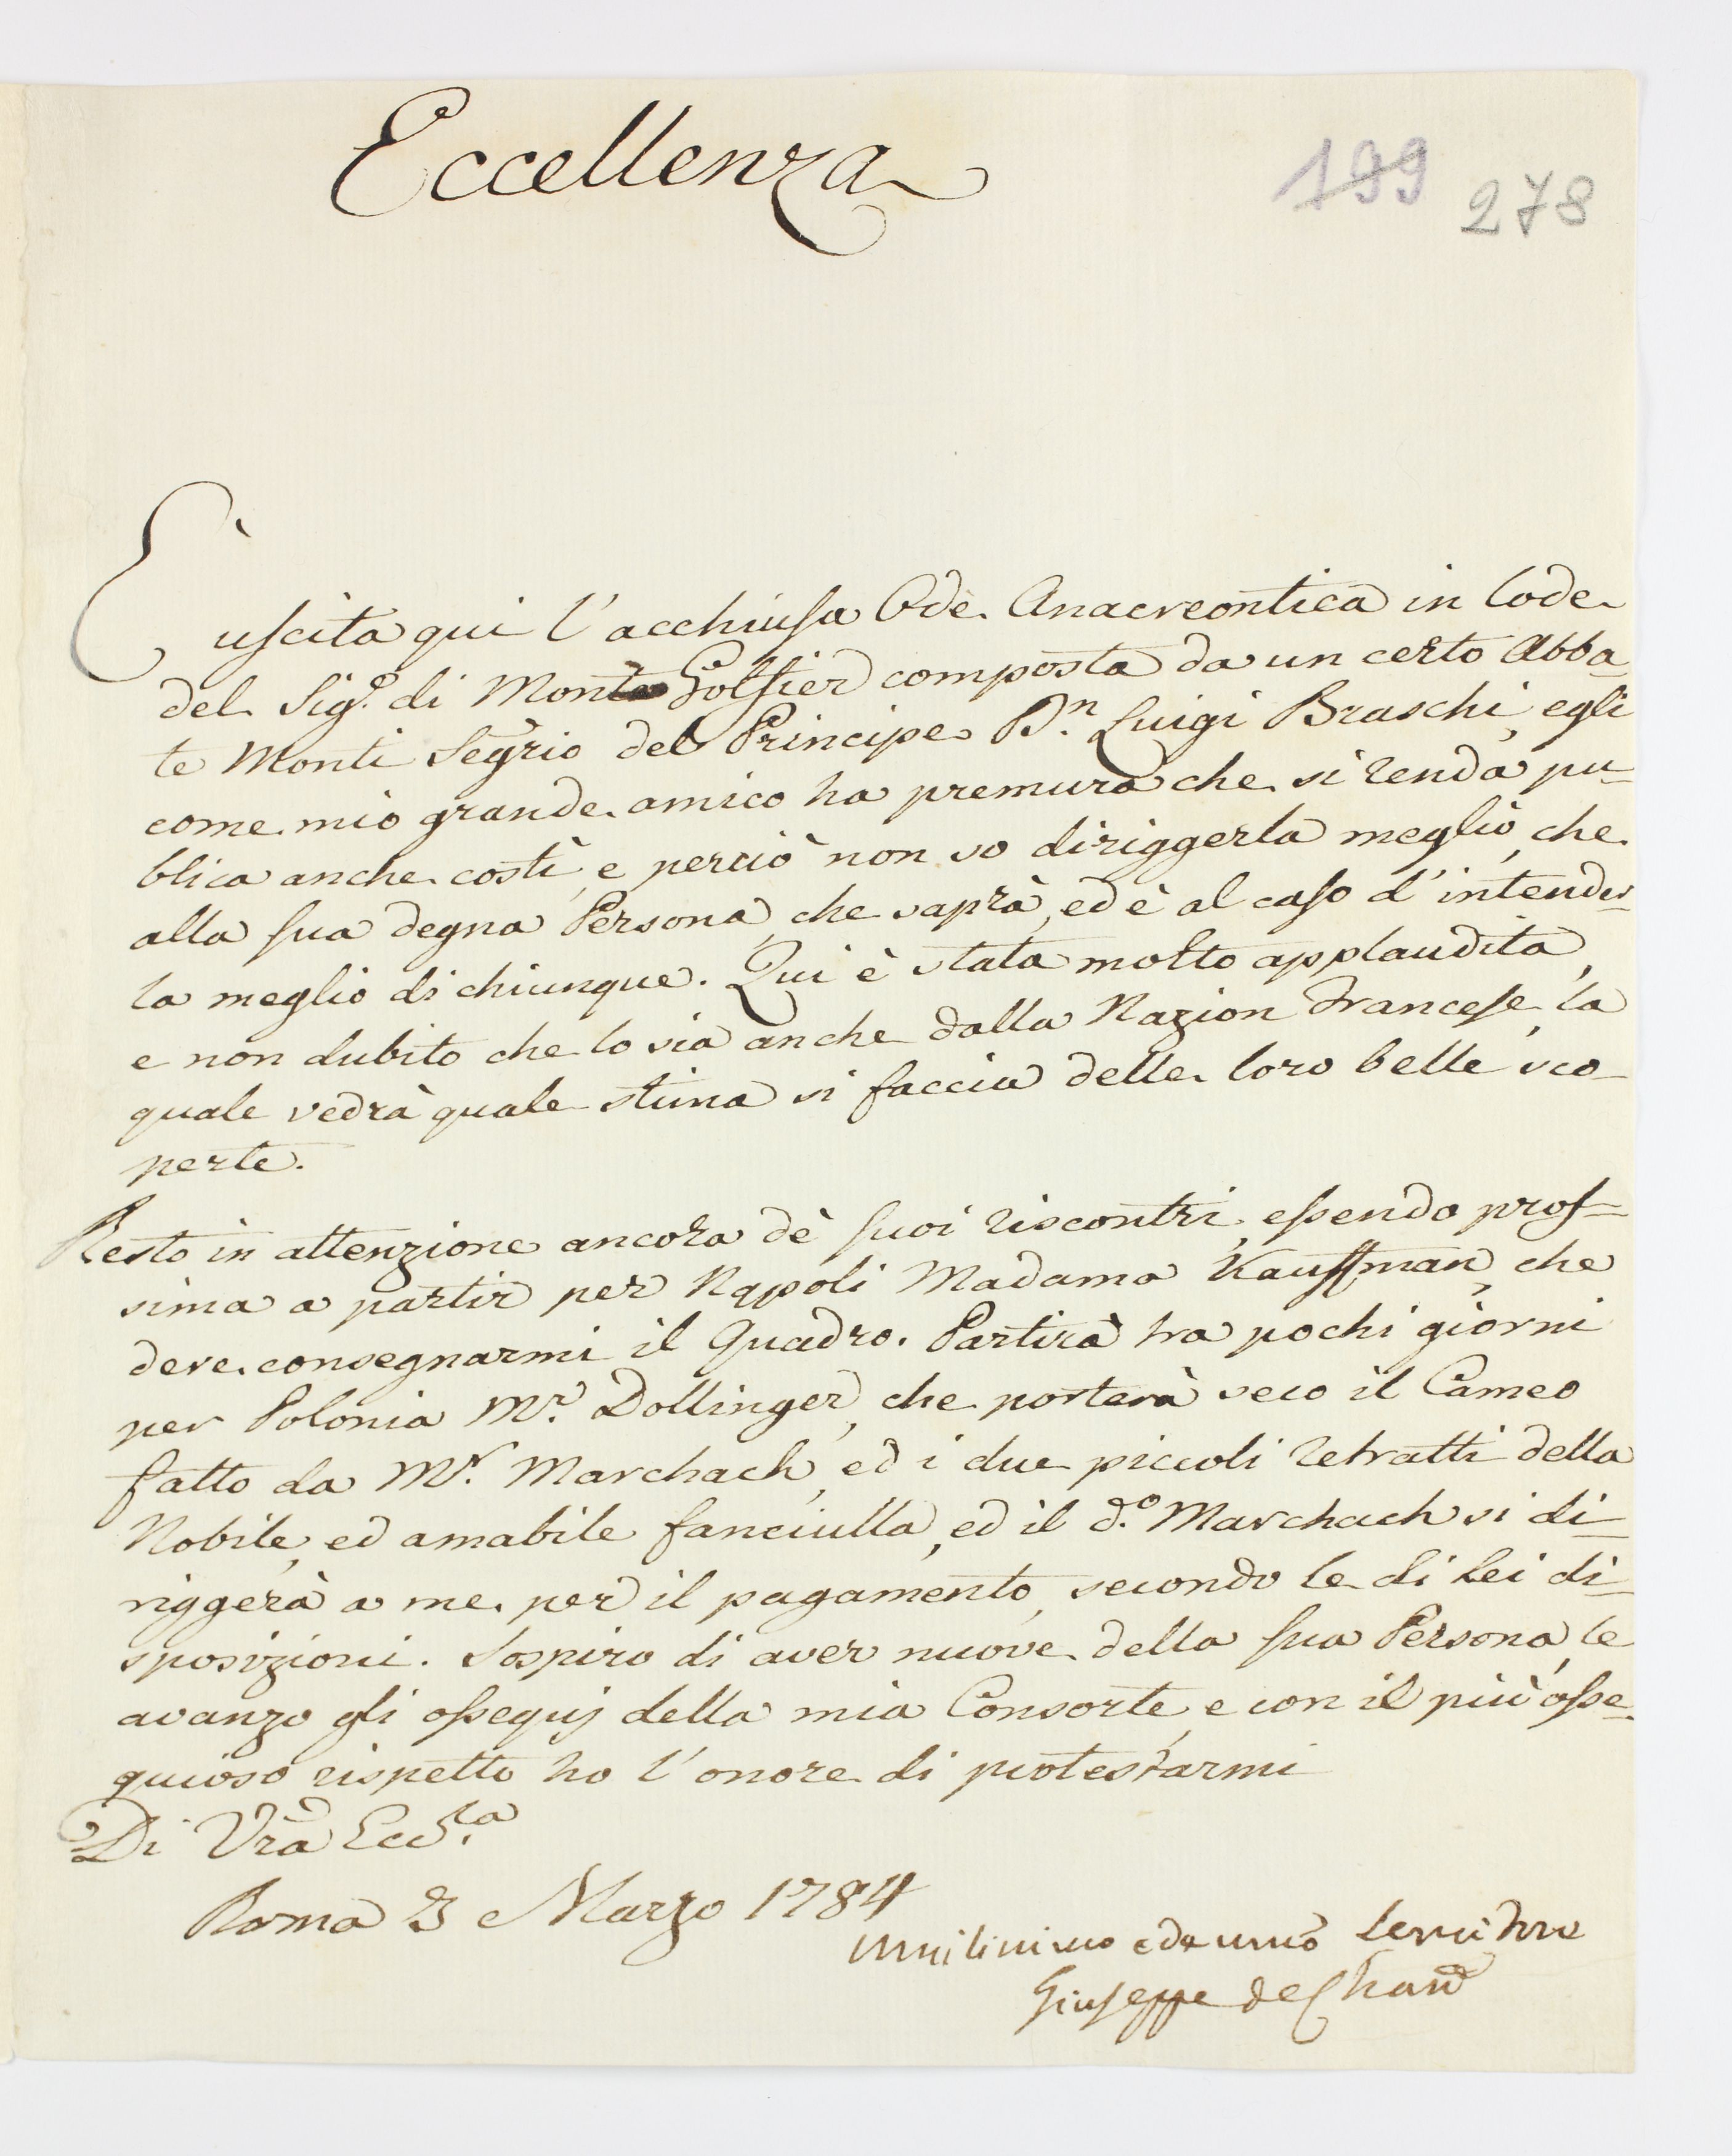 Eccellenza
199 278
È uscita qui l'acchiusa Ode Anacreontica in lode
del Sig.e di Monte Golfier composta da un certo Abba-
te Monti Segrio del Principe Dn. Luigi Braschi, egli
come mio grande amico ha premura che si renda pu-
blica anche costì, e perciò non so diriggerla meglio, che
alla sua degna Persona, che saprà, ed è al caso d'intender-
la meglio di chiunque. Qui è stata molto applaudita,
e non dubito che lo sia anche dalla Nazion Francese, la
quale vedrà quale stima si faccia delle loro belle sco-
perte.
Resto in attenzione ancora dè suoi riscontri, essendo pros-
sima a partir per Napoli Madama Kauffman, che
deve consegnarmi il Quadro. Partirà tra pochi giorni
per Polonia Mr. Dollinger, che porterà seco il Cameo
fatto da Mr. Marchach, ed i due piccoli retratti della
Nobile, ed amabile fanciulla, ed il d.o Marchach si di-
riggerà a me per il pagamento, secondo le di Lei di-
sposizioni. Sospiro di aver nuove della sua Persona, le
avanzo gli ossequj della mia Consorte, e con il più osse-
quioso rispetto ho l'onore di protestarmi
Di Vrã Eccza
Roma 3 Marzo 1784
Servitore
Giuseppe